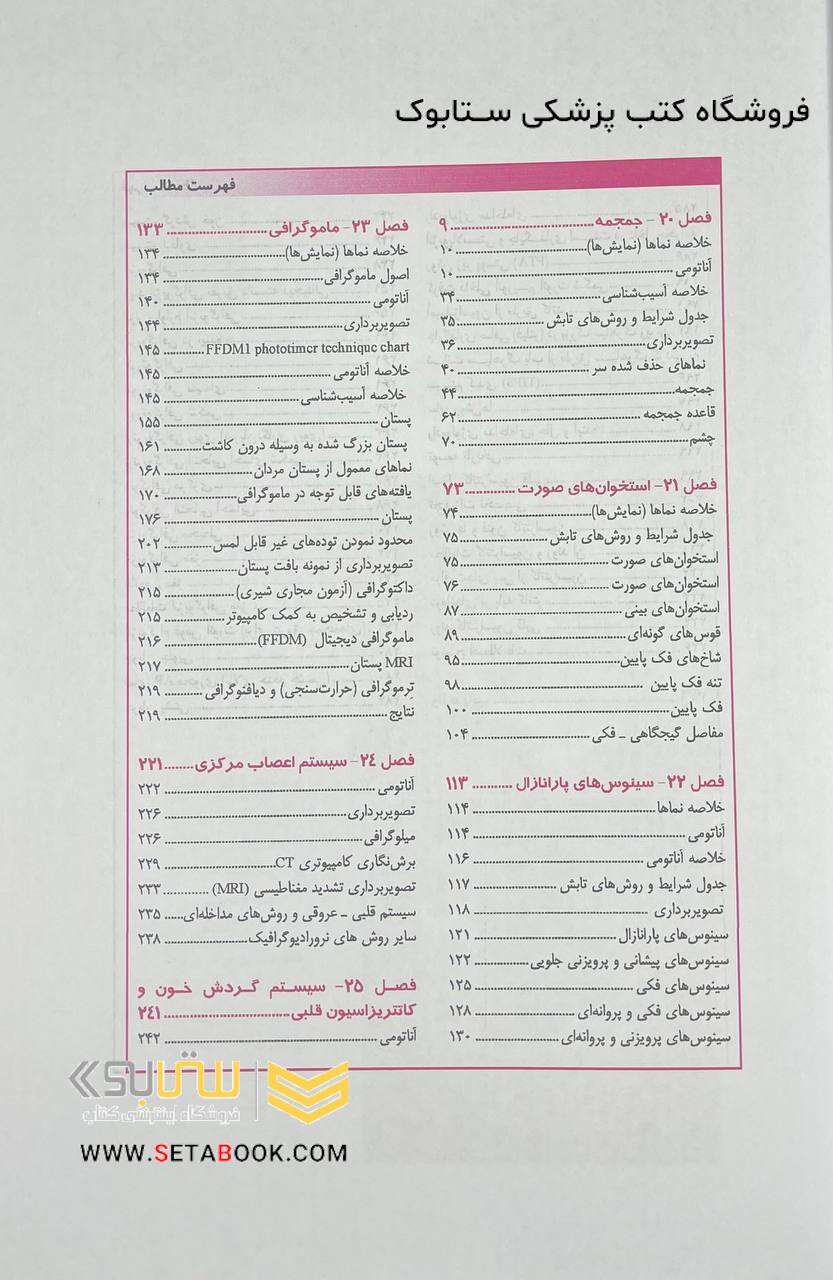 فروشگاه کتب پزشکی ستابوک
فهرست مطالب
فصل ۲۰- جمجمه ........ ۹
خلاصه نماها (نمایش‌ها) ........ ۱۰
آناتومی ........ ۱۰
خلاصه آسیب‌شناسی ........ ۳۴
جدول شرایط و روش‌های تابش ........ ۳۵
تصویربرداری ........ ۳۶
نماهای حذف شده سر ........ ۴۰
جمجمه ........ ۴۴
قاعده جمجمه ........ ۶۲
چشم ........ ۷۰
فصل ۲۱- استخوان‌های صورت ........ ۷۳
خلاصه نماها (نمایش‌ها) ........ ۷۴
جدول شرایط و روش‌های تابش ........ ۷۵
استخوان‌های صورت ........ ۷۵
استخوان‌های صورت ........ ۷۶
استخوان‌های بینی ........ ۸۷
قوس‌های گونه‌ای ........ ۸۹
شاخ‌های فک پایین ........ ۹۵
تنه فک پایین ........ ۹۸
فک پایین ........ ۱۰۰
مفاصل گیجگاهی ـ فکی ........ ۱۰۴
فصل ۲۲- سینوس‌های پارانازال ........ ۱۱۳
خلاصه نماها ........ ۱۱۴
آناتومی ........ ۱۱۴
خلاصه آناتومی ........ ۱۱۶
جدول شرایط و روش‌های تابش ........ ۱۱۷
تصویربرداری ........ ۱۱۸
سینوس‌های پارانازال ........ ۱۲۱
سینوس‌های پیشانی و پرویزنی جلویی ........ ۱۲۲
سینوس‌های فکی ........ ۱۲۵
سینوس‌های فکی و پروانه‌ای ........ ۱۲۸
سینوس‌های پرویزنی و پروانه‌ای ........ ۱۳۰
فصل ۲۳- ماموگرافی ........ ۱۳۳
خلاصه نماها (نمایش‌ها) ........ ۱۳۴
اصول ماموگرافی ........ ۱۳۴
آناتومی ........ ۱۴۰
تصویربرداری ........ ۱۴۴
FFDM1 phototimer technique chart ........ ۱۴۵
خلاصه آناتومی ........ ۱۴۵
خلاصه آسیب‌شناسی ........ ۱۴۵
پستان ........ ۱۵۵
پستان بزرگ شده به وسیله درون کاشت ........ ۱۶۱
نماهای معمول از پستان مردان ........ ۱۶۸
یافته‌های قابل توجه در ماموگرافی ........ ۱۷۰
پستان ........ ۱۷۶
محدود نمودن توده‌های غیر قابل لمس ........ ۲۰۲
تصویربرداری از نمونه بافت پستان ........ ۲۱۳
داکتوگرافی (آزمون مجاری شیری) ........ ۲۱۵
ردیابی و تشخیص به کمک کامپیوتر ........ ۲۱۵
ماموگرافی دیجیتال (FFDM) ........ ۲۱۶
MRI پستان ........ ۲۱۷
ترموگرافی (حرارت‌سنجی) و دیافنوگرافی ........ ۲۱۹
نتایج ........ ۲۱۹
فصل ۲۴- سیستم اعصاب مرکزی ........ ۲۲۱
آناتومی ........ ۲۲۲
تصویربرداری ........ ۲۲۶
میلوگرافی ........ ۲۲۶
برش‌نگاری کامپیوتری CT ........ ۲۲۹
تصویربرداری تشدید مغناطیسی (MRI) ........ ۲۳۳
سیستم قلبی ـ عروقی و روش‌های مداخله‌ای ........ ۲۳۵
سایر روش های نرورادیوگرافیک ........ ۲۳۸
فصل ۲۵- سیستم گردش خون و
کاتتریزاسیون قلبی ........ ۲۴۱
آناتومی ........ ۲۴۲
ستابوک
فروشگاه اینترنتی کتاب
WWW.SETABOOK.COM